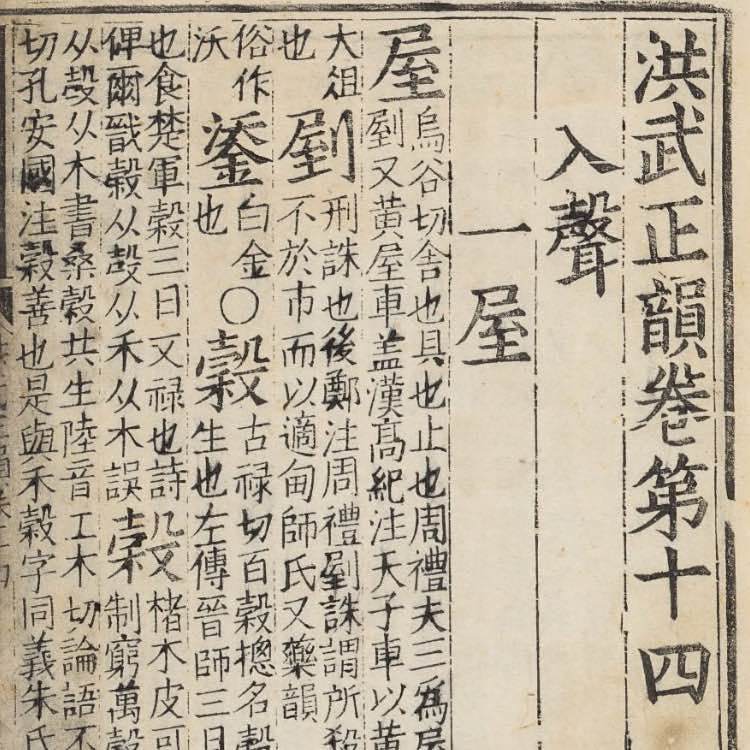 洪武正韻卷第十四
入聲
一屋
屋烏谷切舍也具也止也周禮夫三為屋
剭又黃屋車盖漢高紀注天子車以黃
大徂
也
剭刑誅也後鄭注周禮剭誅謂所殺
不於市而以適甸師氏又藥韻
俗作
沃
鋈白金
也
〇穀古禄切百穀揔名榖
生也左傳晉師三日
也食楚軍榖三日又禄也詩
俾爾戩榖从㱿从禾从木誤
榖楮木皮可
制窮萬榖
从㱿从木書桑榖共生陸音工木切論語不
切孔安國注榖善也是與禾榖字同義朱氏